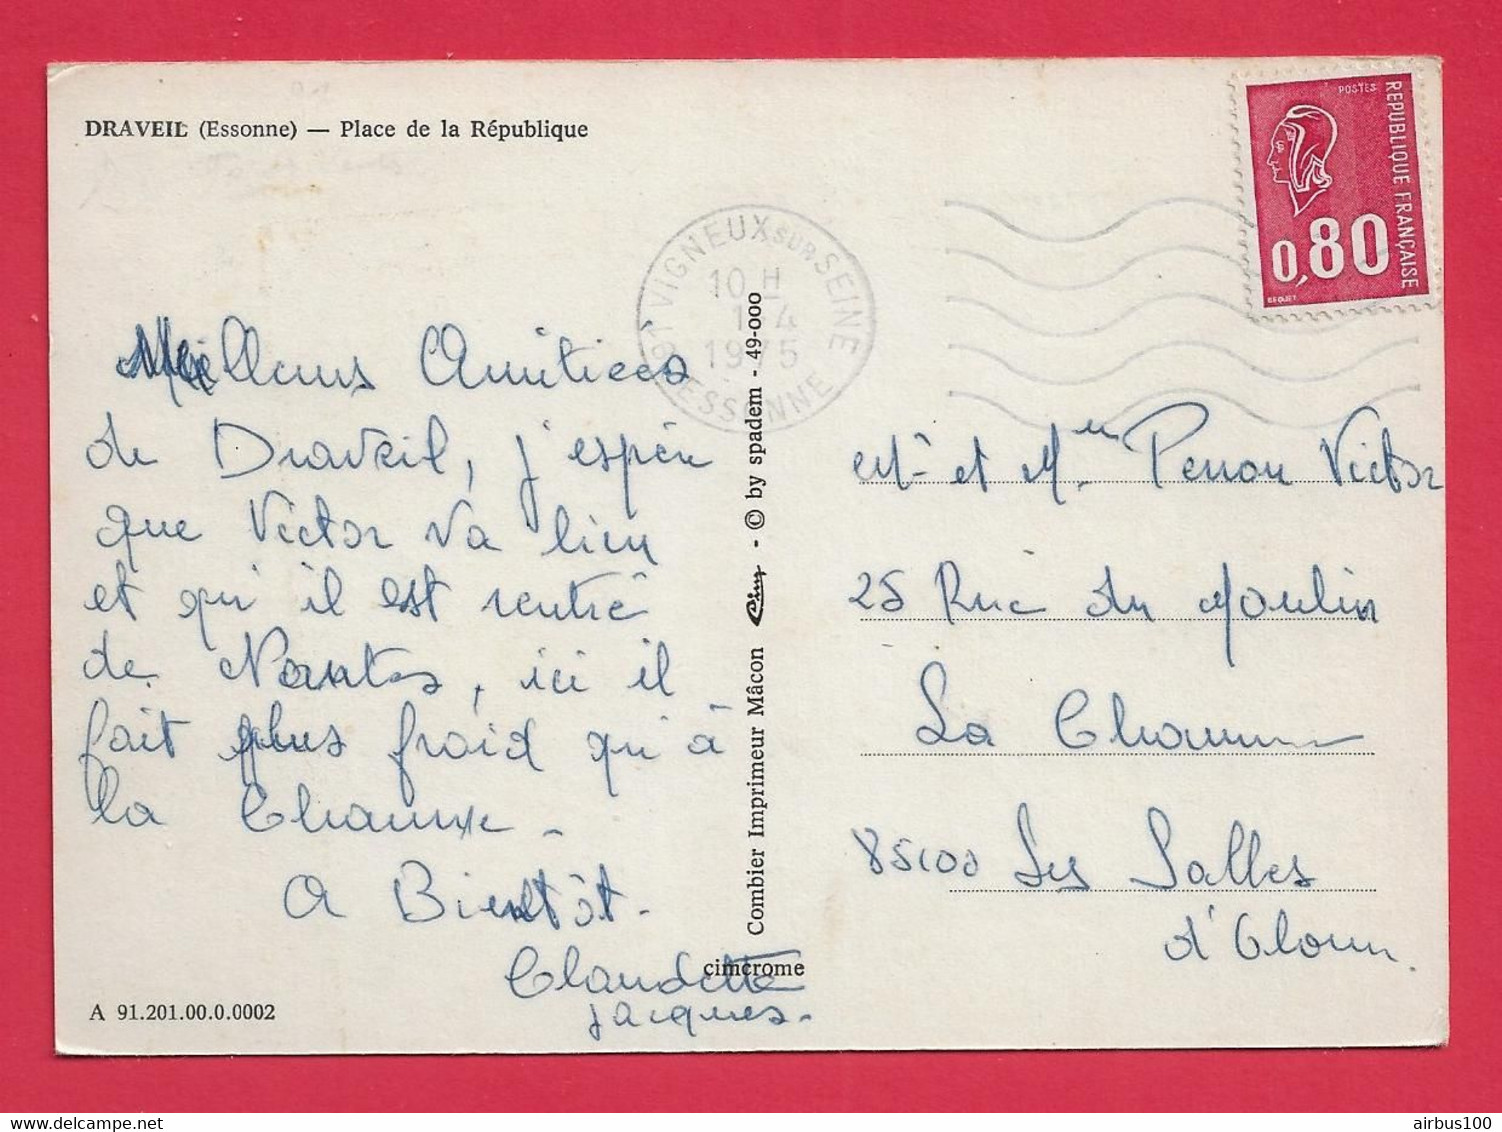 DRAVEIL (Essonne) — Place de la République
POSTES
REPUBLIQUE FRANÇAISE
0,80
BEQUET
91 VIGNEUX SUR SEINE
10 H
1-4
1975
ESSONNE
Meilleurs Amitiées
de Draveil, j'espère
que Victor va bien
et qu'il est rentré
de Nantes, ici il
fait plus froid qu'à
la Chaume.
A Bientôt.
Claudette
Jacques.
Combier Imprimeur Mâcon Cim - © by spadem - 49-000
cimcrome
A 91.201.00.0.0002
et Mme Victor
25 Rue du Moulin
La Chaume
85100 Les Salles
d'Olonne.
delcampe.net
airbus100